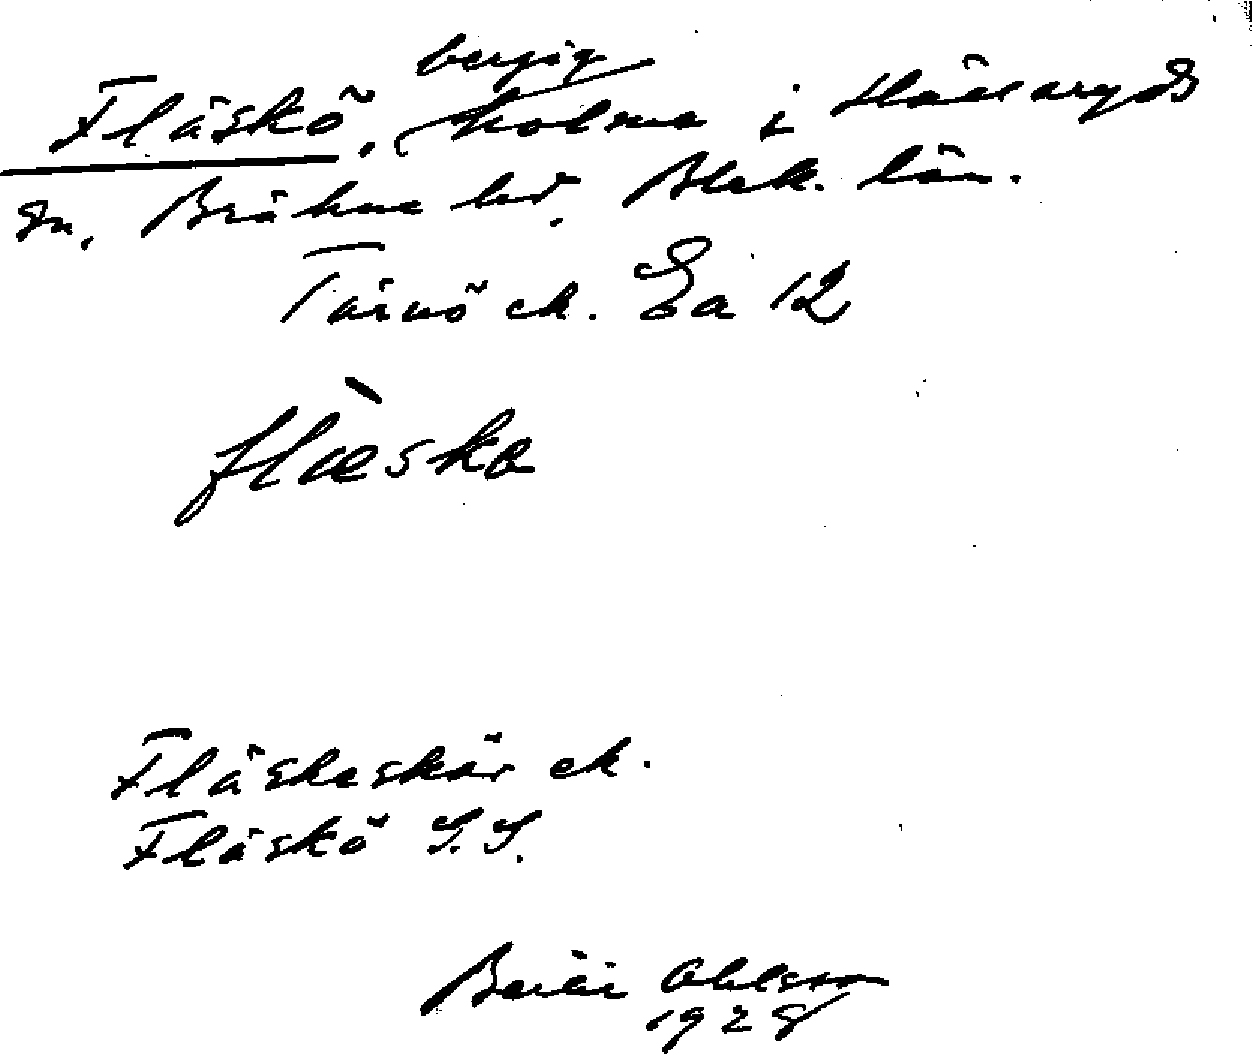 bergig
Fläskö, holme i Hällaryds
sn, Bräkne hd, Blek. län.
Tärnö ek. Ea 12
flæ̀skø
Fläskeskär ek.
Fläskö S.S.
Ohlsson
1928